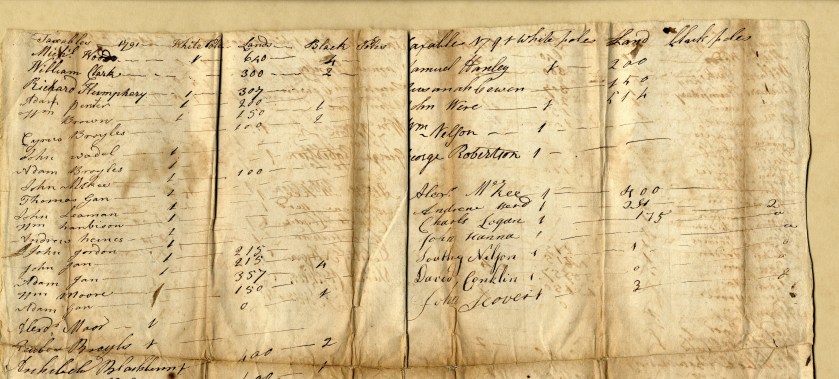 Taxables 1791 White Poles Lands Black Poles
Mich. Wood 1 640 4
William Clark 300 2
Richard Humphery 1 307
Adam Penter 1 200 1
Wm Brown 1 150 2
Cyrus Broyles 100
John Wadel 1
Adam Broyles 1 100
John McKee 1
Thomas Gan 1
John Leaman 1
Wm Harbison 1
Andrew Heines 1
John Gordon 1 215
John Gan 1 215
Adam Gan 1 357 4
Wm Moore 1 150 1
Adam Gan 0
Moor 1
Reuben Broyls 1 2
Blackburn 1 400
Taxable 1791 White poles Land black poles
Samuel Hanley 1 200
150
John Were 1 514
Wm Nelson 1
George Robertson 1
Alexr McKee 1 400
Andrew 1 2
Charls Logan 1 175
John Hanna 1
Southy Nelson 1 1
David Conklin 1 0
John 1 3